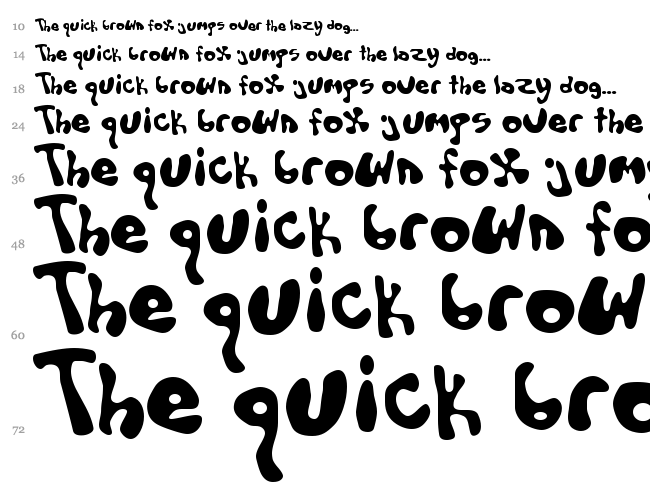 10 The quick brown fox jumps over the lazy dog...
14 The quick brown fox jumps over the lazy dog...
18 The quick brown fox jumps over the lazy dog...
24 The quick brown fox jumps over the
36 The quick brown fox jump
48 The quick brown fo
60 The quick brow
72 The quick bro